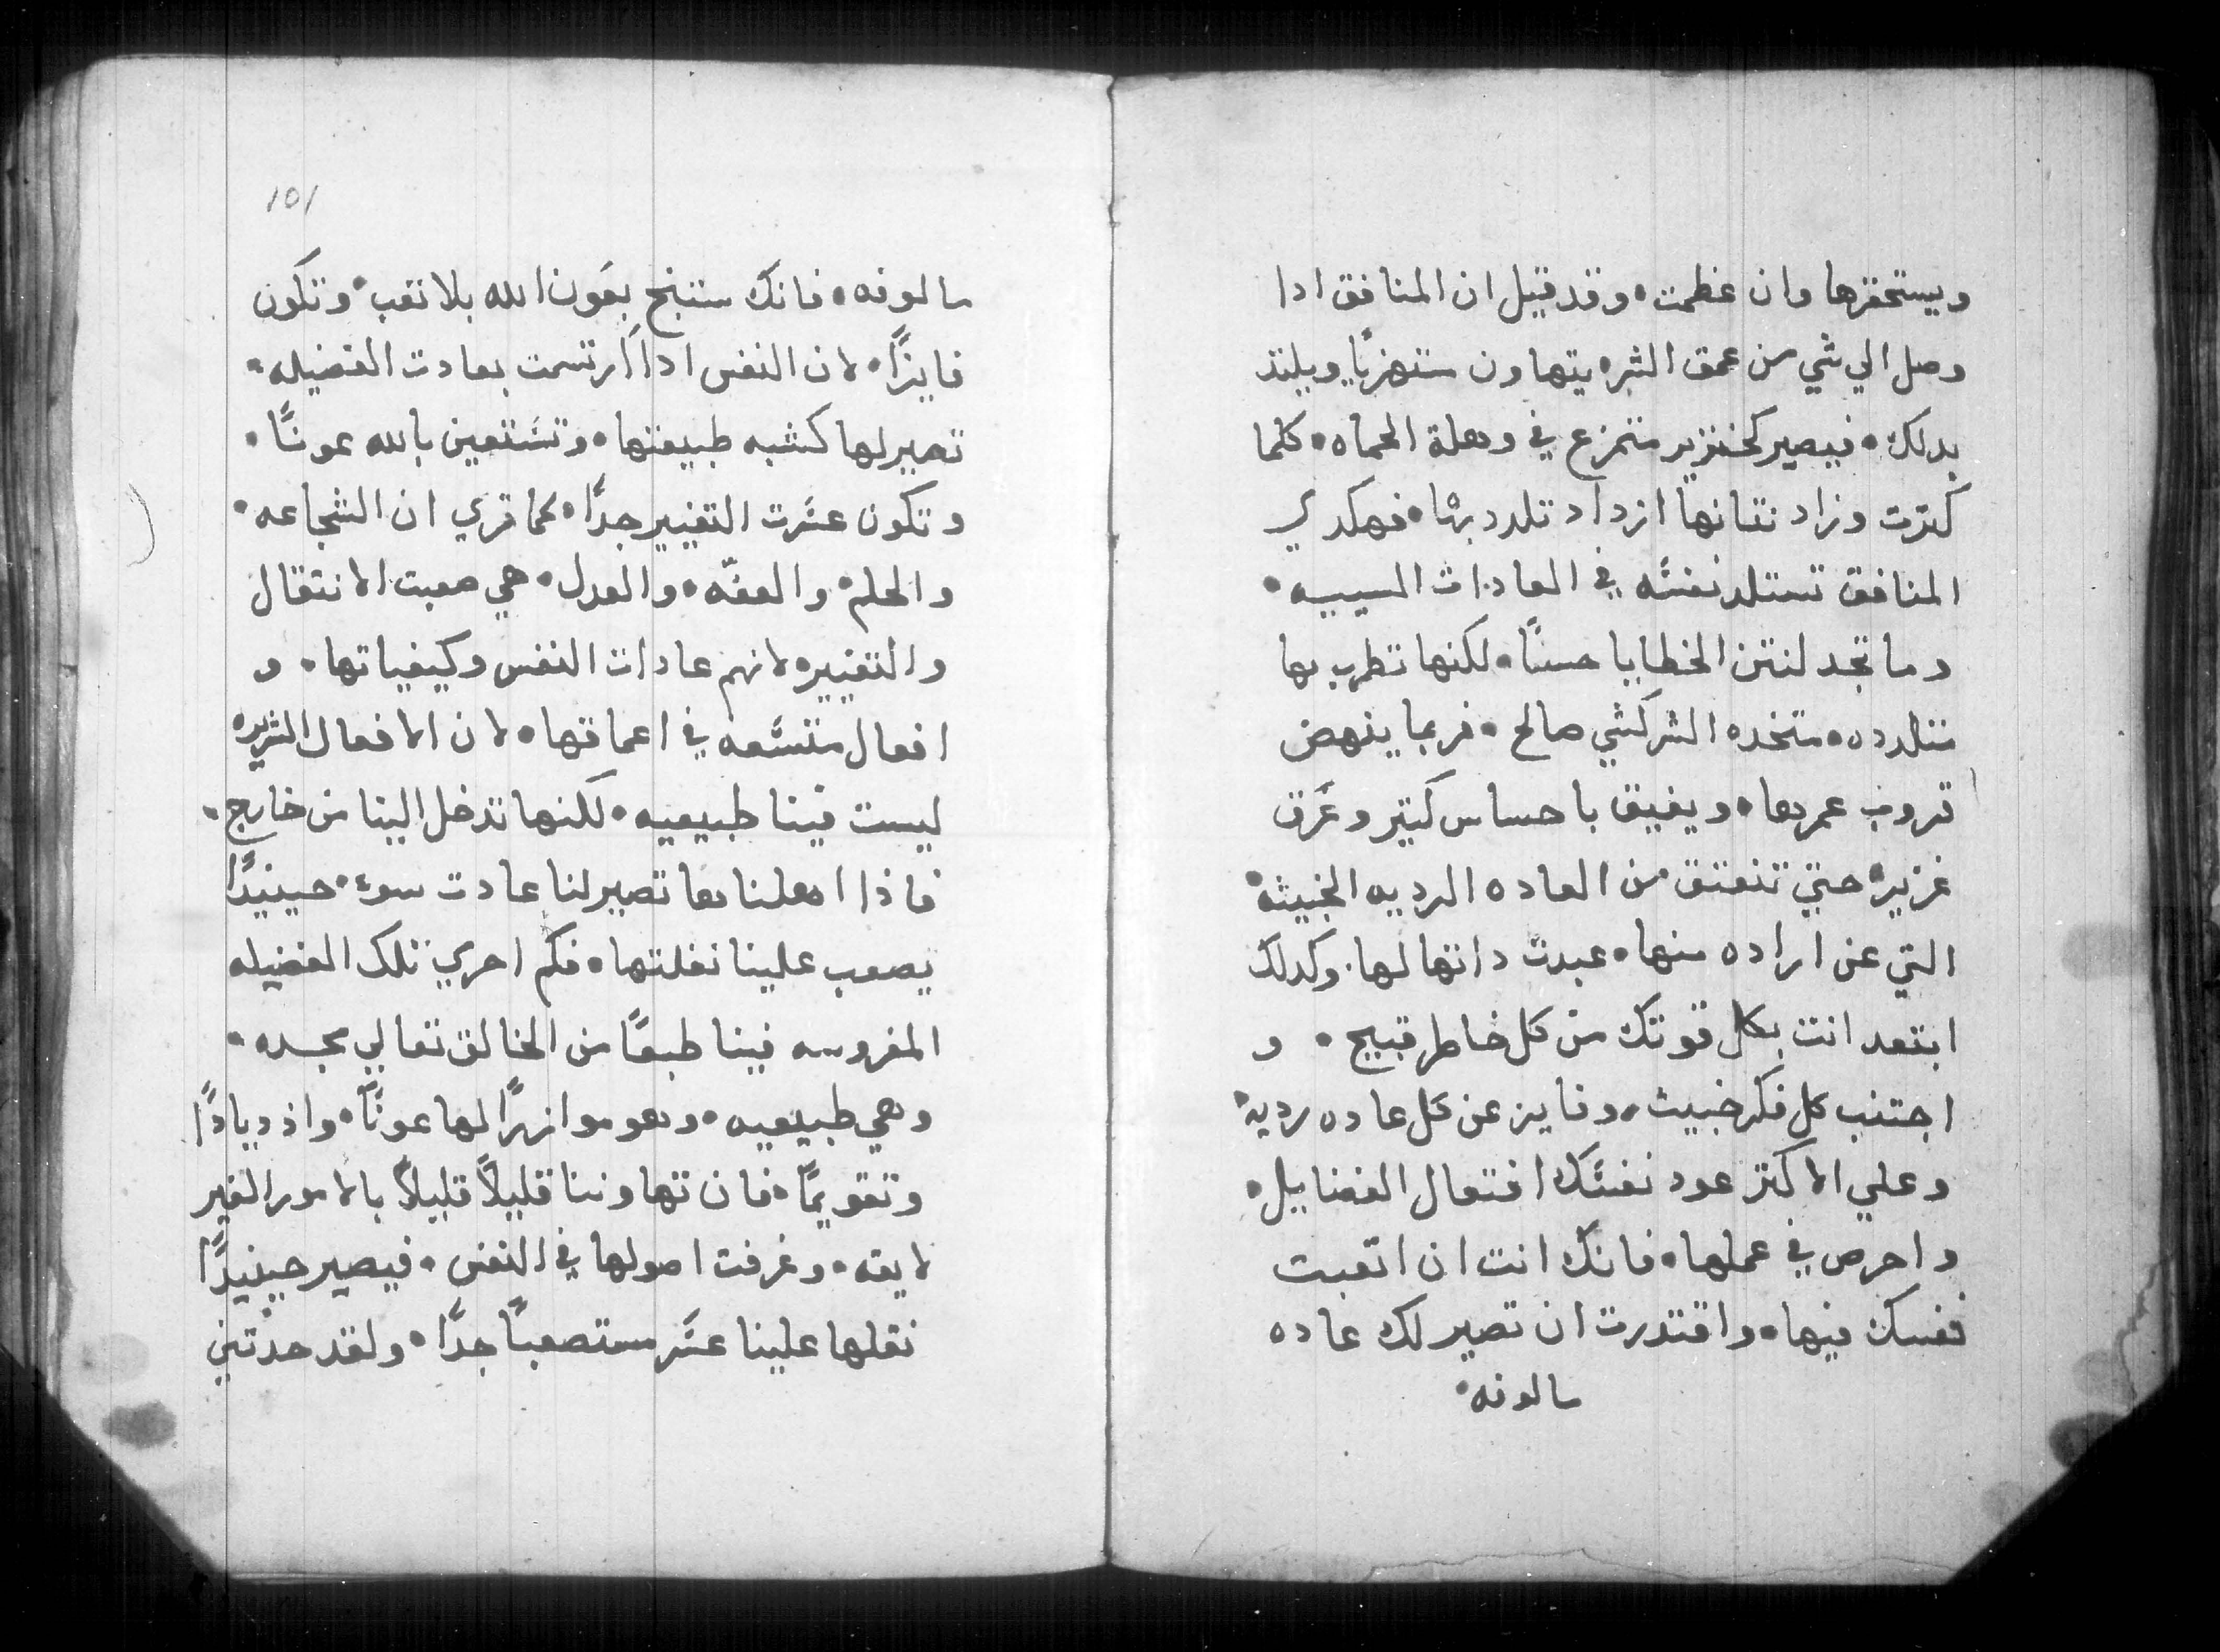 ويستحقرها وان عظمت • وقد قيل ان المنافق ادا
وصل الي شي من عمق الشر • يتهاون ستهزيًا ويلتذ
بدلك • فيصير كخنزير متمرع في وهلة الحماه • كلما
كترت وزاد نتانها ازداد تلدد بها • فهكدي
المنافق تستلد نفسَّه في العادات السييه •
وما تجد لنتن الخطايا حسنًا • لكنها تطرب بها
متلدده • متخده الشر كشي صالح • فربما ينهض
قروب عمرها • ويفيق باحساس كتير وعَرق
غزير • حتي تنعتق من العاده الرديه الخبيثه •
التي عن اراده منها • عبدت داتها لها • وكدلك
ابتعد انت بكل قوتك من كل خاطر قبيح • و
اجتنب كل فكر خبيث • وفايز عن كل عاده رديه •
وعلي الاكتر عود نفسَّك افتعال الفضايل •
واحرص في عملها • فانك انت ان اتعبت
نفسك فيها • واقتدرت ان تصير لك عاده
مالوفه •
101
مالوفه • فانك ستنجح بعَون الله بلا تعب • وتكون
فايزًا • لان النفس ادا ارتسمت بعادت الفضيله •
تصير لها كشبه طبيعتها • وتسَتعين بالله عونًا •
وتكون عسَّرت التغيير جدًا • كما تري ان الشجاعه •
والحلم • والعفّه • والعدل • هي صعبت الانتقال
والتغيير • لانهم عادات النفس وكيفياتها • و
افعال متسَّعه في اعماقها • لان الافعال الشريره
ليست فينا طبيعيه • لكنها تدخل الينا من خارج •
فاذا اهملنا بها تصير لنا عادت سوء • حينيدًا
يصعب علينا نقلتها • فكم احري تلك الفضيله
المغروسه فينا طبعًا من الخالق تعالي مجده •
وهي طبيعيه • وهو موازرًا لها عونًا • واذديادًا
وتقويمًا • فان تهاوننا قليلاً قليلاً بالامور الغير
لايقه • وغرفت اصولها في النفس • فيصير حينيدًا
نقلها علينا عسَّر مستصعبًا جدًا • ولقد حدتني